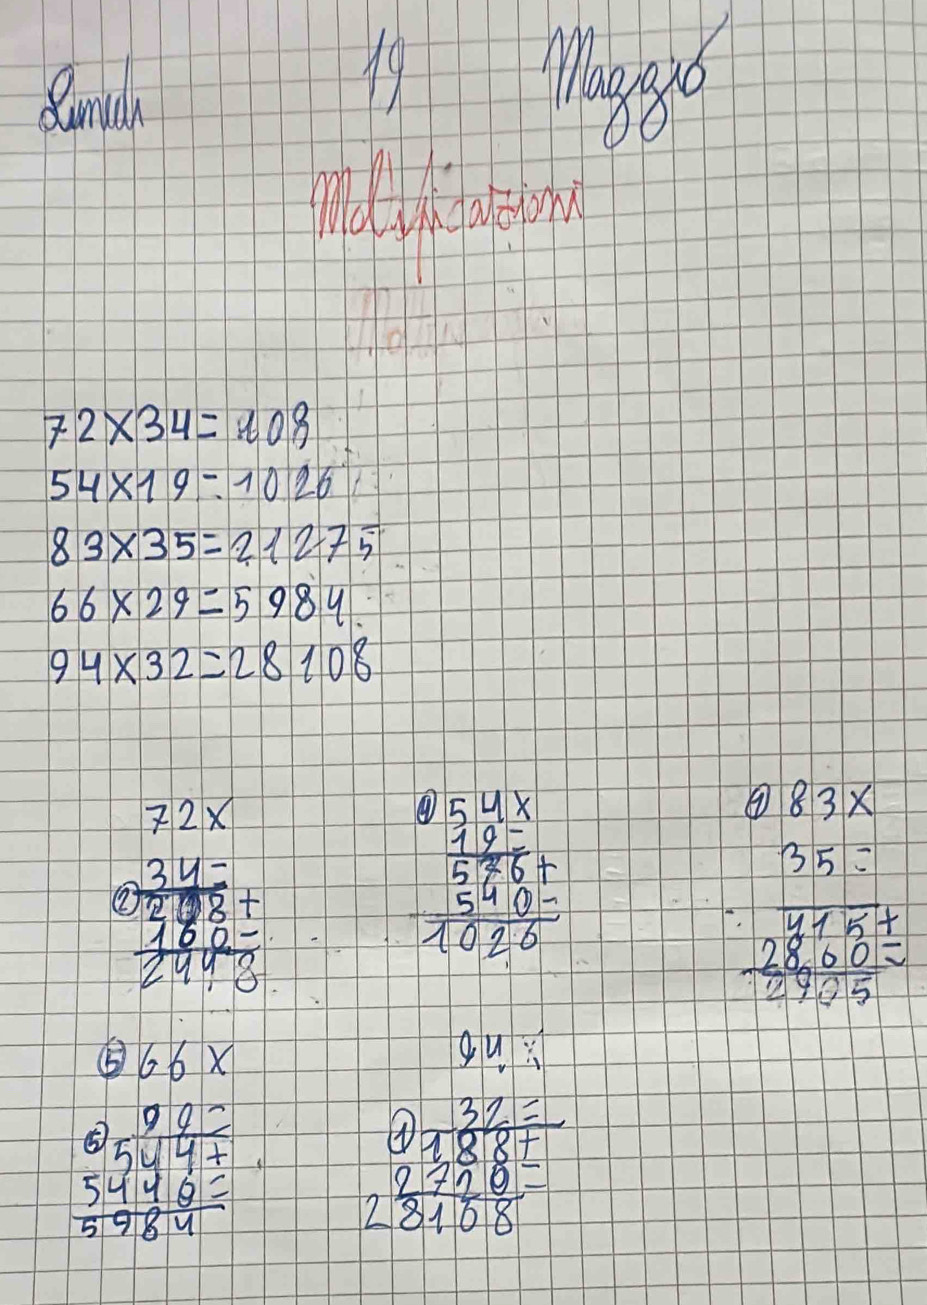 19 Maggio
Moltiplicazioni
72×34=108
54×19=1026
83×35=21275
66×29=5984
94×32=28108
72×
34=
② 208+
160=
2448
④ 54×
19=
576+
540=
1026
① 83×
35=
415+
2860=
2905
⑤ 66×
99=
⑤ 544+
5440=
5984
94×
32=
① 188+
2720=
28108